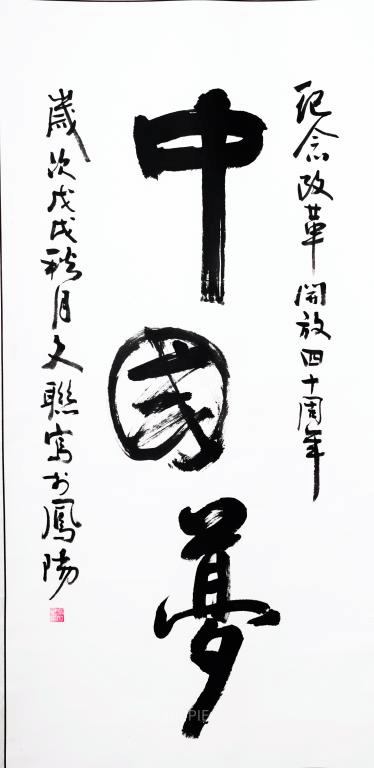 紀念改革開放四十周年
中國夢
歲次戊戌秋月文聯寫於鳳陽
PIE